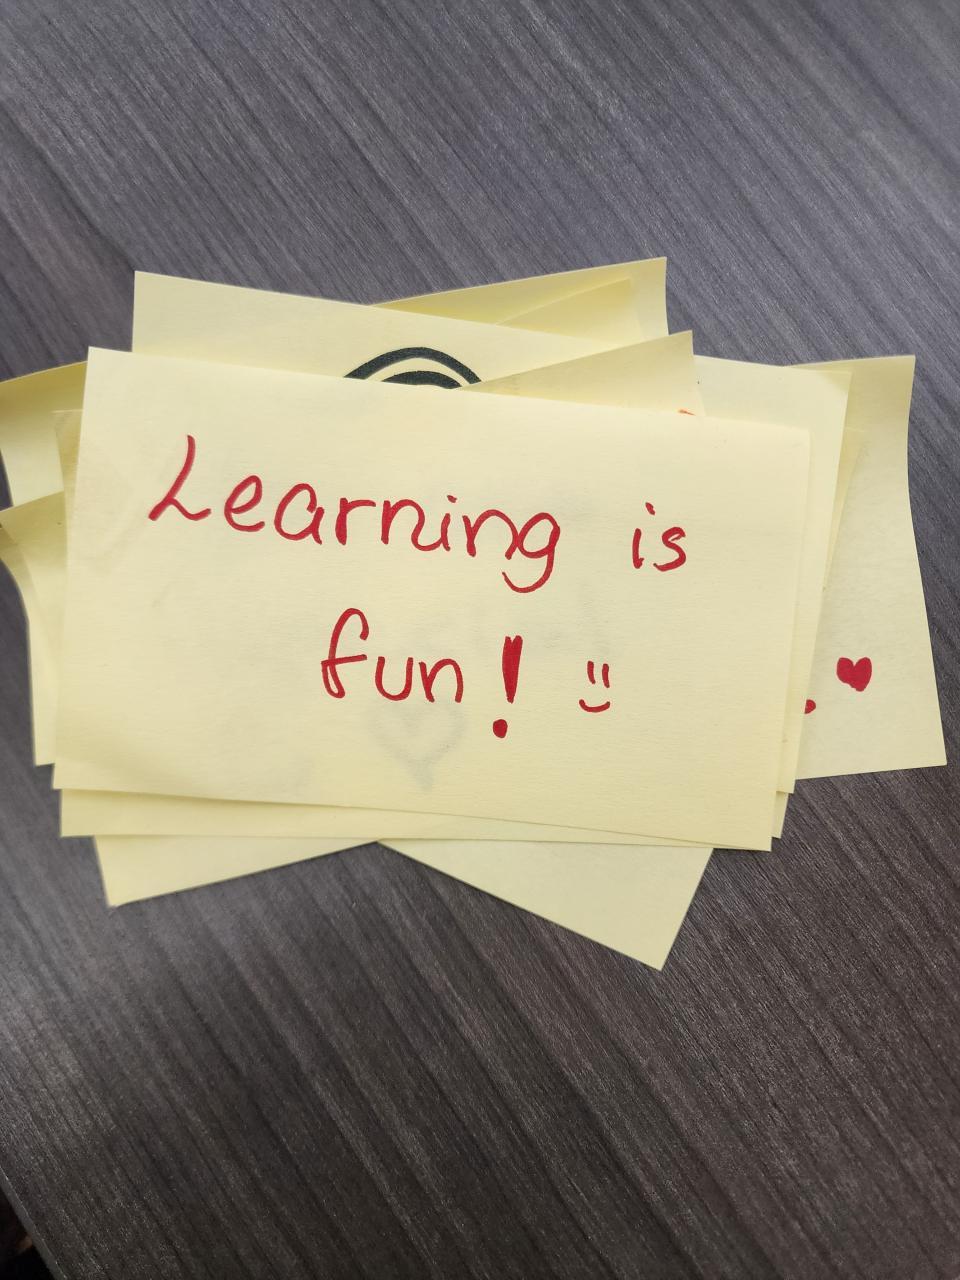 Learning is
fun! :)